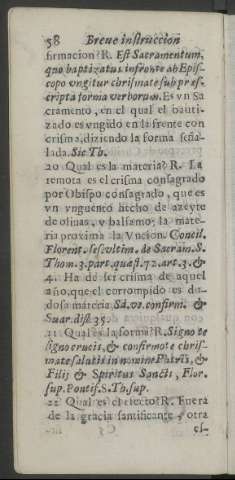 58 Breue instruccion
firmacion? R. Est Sacramentum,
quo baptizatus in fronte ab Epis-
copo vngitur chrismate sub præs-
cripta forma verborum. Es vn Sa
cramento, en el qual el bauti-
zado es vngido en la frente con
crisma, diziendo la forma seña-
lada. Sic Th.
20 Qual es la materia? R. La
remota es el crisma consagrado
por Obispo consagrado, que es
vn vnguento hecho de azeyte
de oliuas, y balsamo; la mate-
ria proxima la Vncion. Concil.
Florent. ses. vltim. de Sacram. S.
Thom. 3. part. quæst. 72. art. 3. &
4. Ha de ser crisma de aquel
año, que el corrompido es du-
dosa materia Sà. vs. confirm. &
Suar. disp. 35.
21 Qual es la forma? R. Signo te
signo crucis, & confirmo te chris-
mate salutis in nomine Patris, &
Filij & Spiritus Sancti, Flor.
sup. Pontif. S. Th. sup.
22 Qual es el efecto? R. Fuera
de la gracia santificante, otra